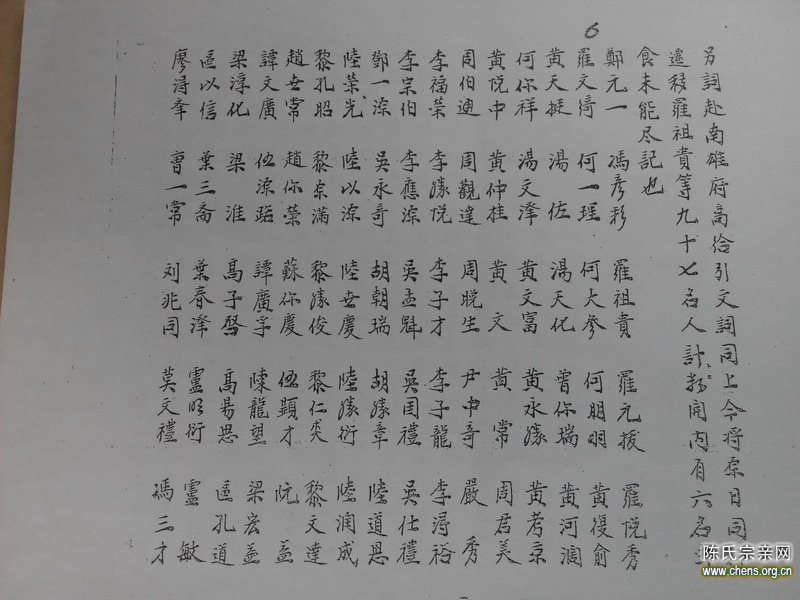 6
另詞赴南雄府高給引文詞同上今將原日同
遷移羅祖貴等九十七名人計搒開內有六名
食未能尽記也
鄭元一 馮彥彩 羅祖貴 羅元拔 羅悅秀
羅文綺 何一瑆 何大參 何明朗 黃復俞
黃天挺 湯佐 湯天化 曾你瑞 黃河润
何你祥 湯文澤 黃文富 黃永勝 黃考京
黃悅中 黃仲桂 黃文 黃常 周君美
周伯迪 周觀達 周晚生 尹中奇 嚴秀
李福榮 李勝悅 李子才 李子龍 李潯裕
李宗伯 李應深 吳孟魁 吳国禮 吳仕禮
鄭一深 吳永奇 胡朝瑞 胡勝章 陸道思
陸榮光 陸以深 陸世慶 陸勝衍 陸润成
黎孔昭 黎宗滿 黎勝俊 黎仁奕 黎文達
趙世常 趙你榮 蘇你慶 伍顕才 阮益
譚文廣 伍深貽 譚廣孚 陳龍望 梁宏益
梁淳化 梁淮 高子啓 高易思 區孔道
區以信 葉三斋 葉春澤 盧明衍 盧敏
廖濤奉 曹一常 刘兆同 莫文禮 馮三才
陈氏宗亲网
www.chens.org.cn